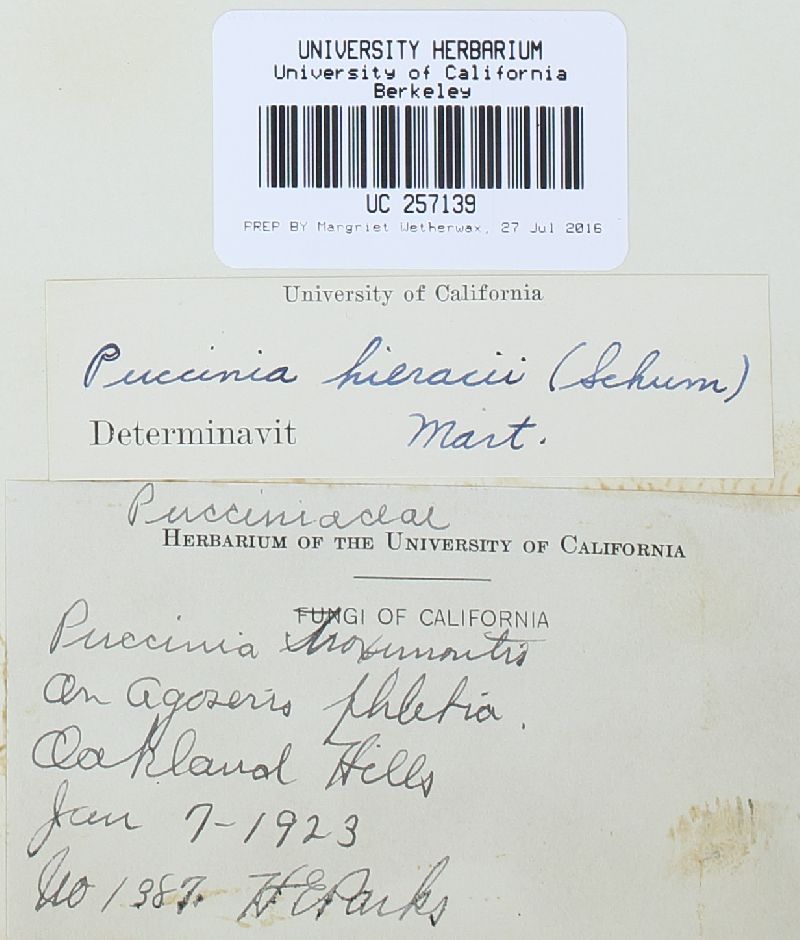 UNIVERSITY HERBARIUM
University of California
Berkeley
UC 257139
PREP BY Margriet Wetherwax, 27 Jul 2016
University of California
Puccinia hieracii (Schum)
Determinavit Mart.
Pucciniaceae
HERBARIUM OF THE UNIVERSITY OF CALIFORNIA
FUNGI OF CALIFORNIA
Puccinia
On Agoseris
Oakland Hills
Jan 7-1923
No 1387. H E Parks